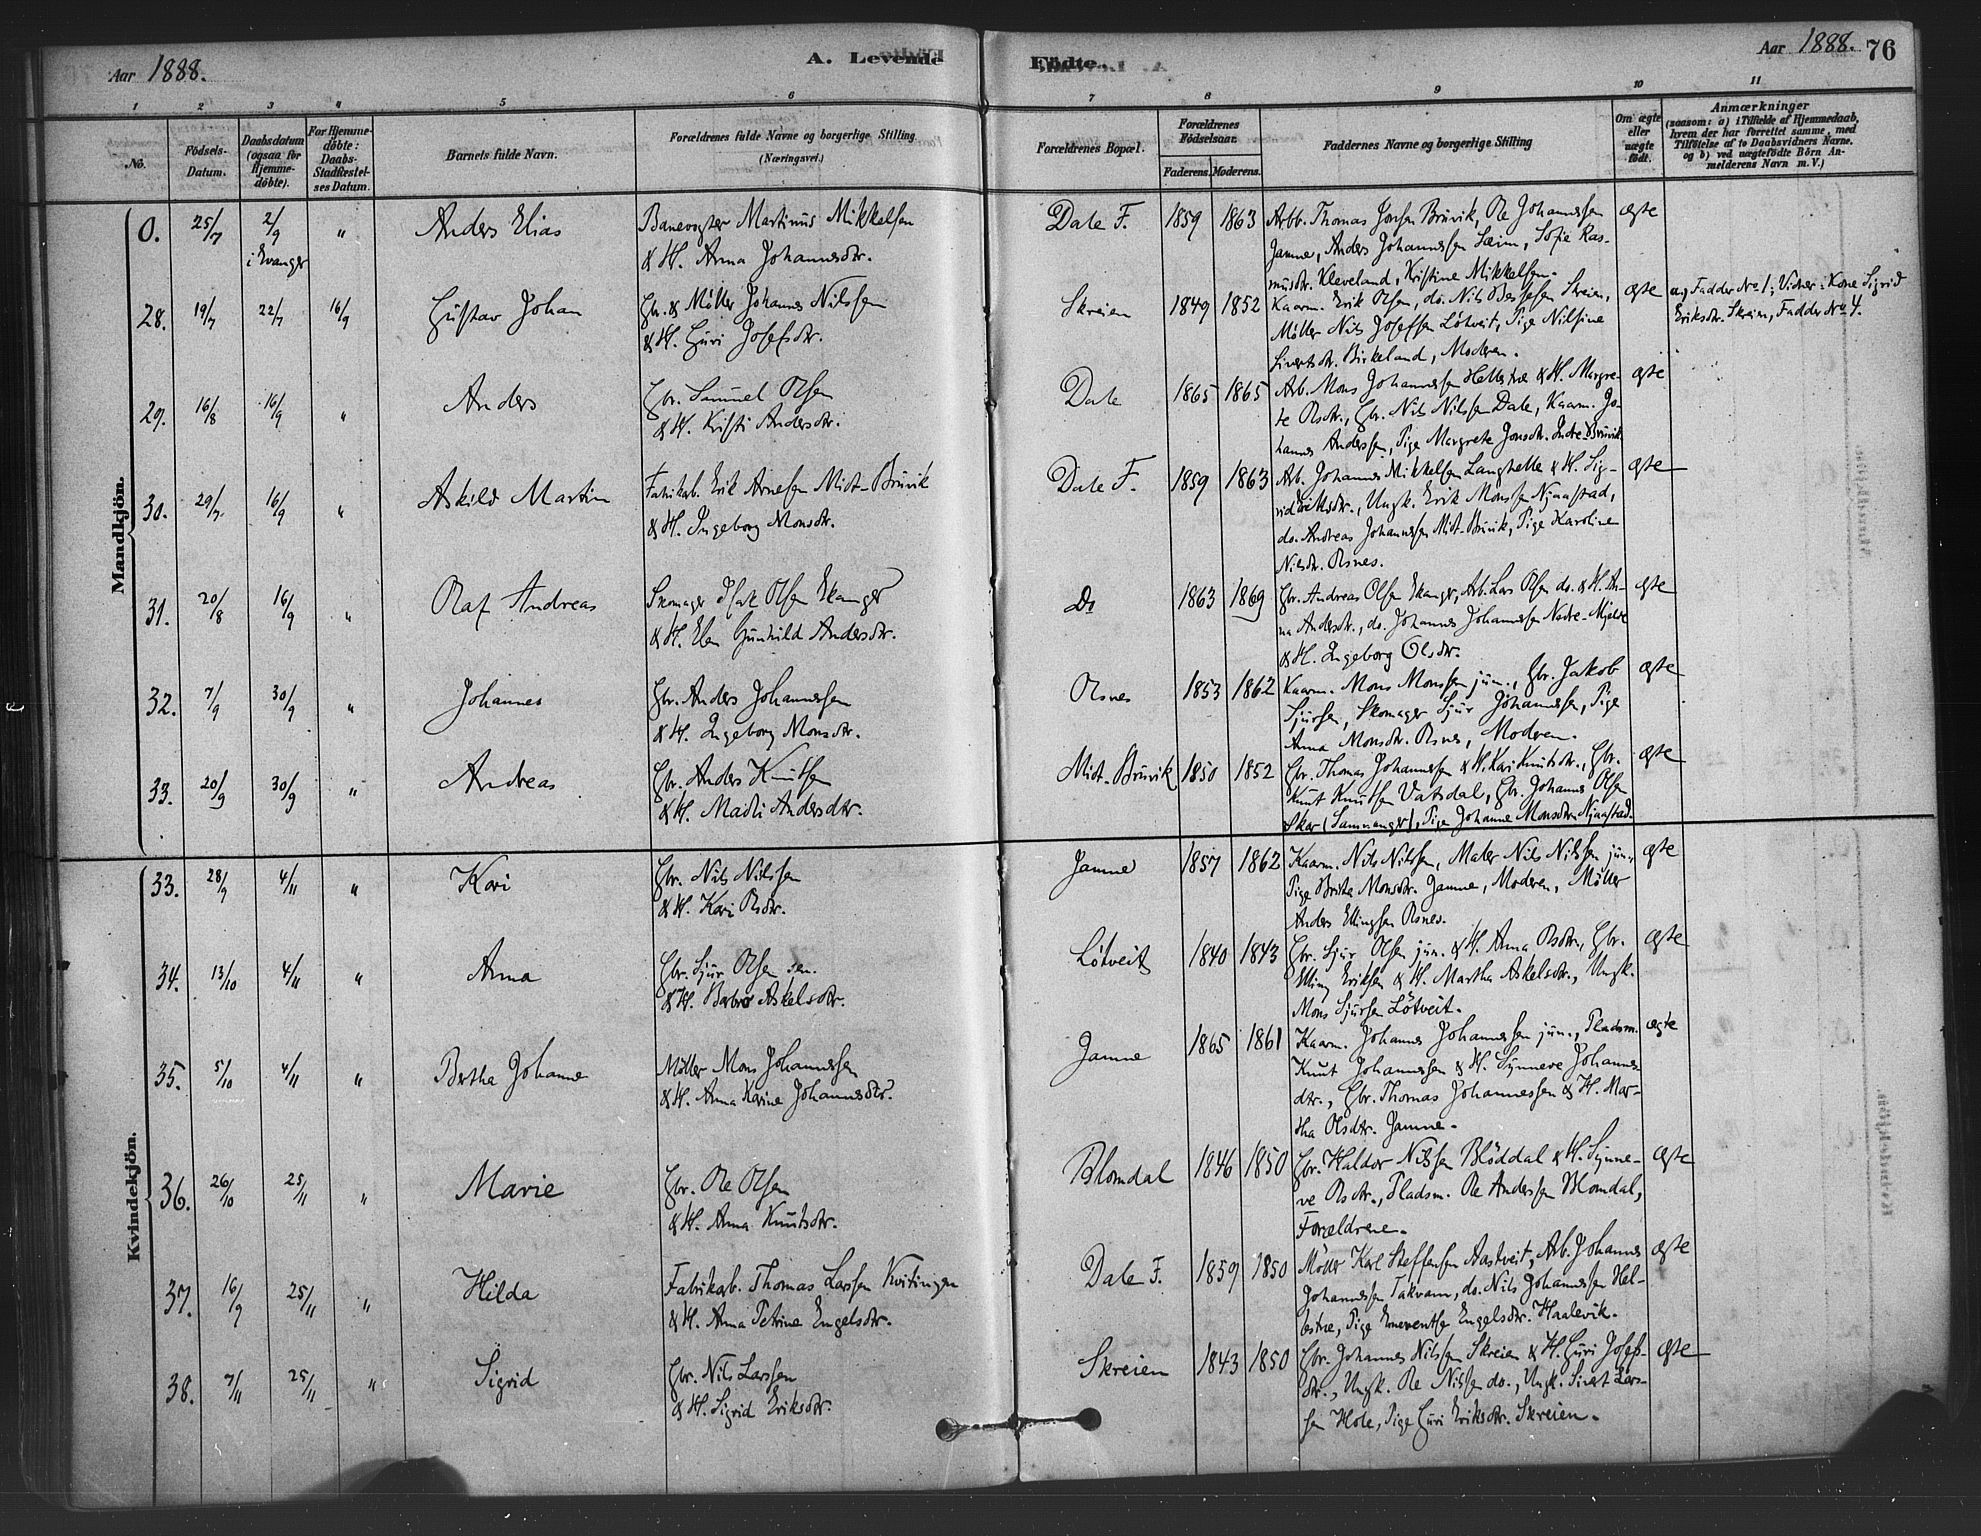 Aar 1888. A. Levende Födte. Aar 1888. 76
1 2 3 4 5 6 7 8 9 10 11
No. Födsels-Datum. Daabsdatum (ogsaa for Hjemmedöbte). For Hjemmedöbte: Daabs-Stadfæstelses Datum. Barnets fulde Navn. Forældrenes fulde Navne og borgerlige Stilling (Næringsvei.) Forældrenes Bopæl. Forældrenes Födselsaar. Faderens. Moderens. Faddernes Navne og borgerlige Stilling Om ægte eller uægte födt. Anmærkninger (saasom: a) i Tilfælde af Hjemmedaab, hvem der har forrettet samme, med Tilföielse af to Daabsvidners Navne, og b) ved uægtefödte Börn Anmelderens Navn m. V.)
Mandkjön.
0. 25/7 2/9 i Evanger " Anders Elias
Banevogter Martinus Mikkelsen
& H. Anna Johannesdtr.
Dale F. 1859 1863
Arbb. Thomas Jonsen Bruvik, Ole Johannessen
Jamne, Anders Johannessen Sæim, Sofie Ras-
musdtr. Kleveland, Kristine Mikkelsen.
ægte
28. 19/7 22/7 16/9 Gustav Johan
Gbr. & Møller Johannes Nilssen
& H. Guri Josefsdtr.
Skreien 1849 1852
Kaarm. Erik Olsen, do. Nils Skreien,
Møller Nils Josefsen Løtveit, Pige Nilsine
Sivertsdtr. Birkeland, Moderen.
ægte
a, Fadder No 1; Vidner: Kone Sigrid
Eriksdtr. Skreien, Fadder No 4.
29. 16/8 16/9 " Anders
Gbr. Samuel Olsen
& H. Kristi Andersdtr.
Dale 1865 1865
Arb. Mons Johannessen Hellestræ & H. Margre-
te Olsdtr., Gbr. Nils Nilssen Dale, Kaarm. Jo-
hannes Anderssen, Pige Margrete Jonsdtr. Indre-Bruvik
ægte
30. 29/7. 16/9 " Askild Martin
Fabrikarb. Erik Arnesen Midt-Bruvik
& H. Ingeborg Monsdtr.
Dale F. 1859 1863
Arb. Johannes Mikkelsen Langhelle & H. Sig-
rid Eriksdtr., Ungk. Erik Monssen Njaastad,
do. Andreas Johannessen Midt-Bruvik, Pige Karoline
Nilsdtr. Olsnes.
ægte
31. 20/8 16/9 " Olaf Andreas
Skomager Isak Olsen Ekanger
& H. Elen Gunhild Andersdtr.
Do 1863 1869
Gbr. Andreas Olsen Ekanger, Arb. Lars Olsen do. & H. An-
na Andersdtr., do. Johannes Johannessen Nedre-Mjelde
& H. Ingeborg Olsdtr.
ægte
32. 7/9 30/9 " Johannes
Gbr. Anders Johannessen
& H. Ingeborg Monsdtr.
Olsnes 1853 1862
Kaarm. Mons Monssen jun., Gbr. Jakob
Sjursen, Skomager Sjur Johannessen, Pige
Anna Monsdtr. Olsnes, Moderen.
ægte
33. 20/9 30/9 " Andreas
Gbr. Anders Knutsen
& H. Madli Andersdtr.
Midt-Bruvik 1850 1852
Gbr. Thomas Johannessen & H. Kari Knutsdtr., Gbr.
Knut Knutsen Vatsdal, Gbr. Johannes Olsen
Skar (Samnanger), Pige Johanne Monsdtr. Njaastad.
ægte
Kvindekjön.
33. 28/9 4/11 " Kari
Gbr. Nils Nilssen
& H. Kari Olsdtr.
Jamne 1857 1862
Kaarm. Nils Nilssen, Maler Nils Nilssen jun.,
Pige Brite Monsdtr. Jamne, Moderen, Møller
Anders Ellingsen Olsnes.
ægte
34. 13/10 4/11 " Anna
Gbr. Sjur Olsen sen.
& H. Barbro Askelsdtr.
Løtveit 1840 1843
Gbr. Sjur Olsen jun. & H. Anna Olsdtr., Gbr.
Elling Eriksen & H. Martha Askelsdtr., Ungk.
Mons Sjursen Løtveit.
ægte
35. 5/10 4/11 " Bertha Johanne
Møller Mons Johannessen
& H. Anna Karine Johannesdtr.
Jamne 1865 1861
Kaarm. Johannes Johannessen jun., Pladsm.
Knut Johannessen & H. Synneve Johannes-
dtr., Gbr. Thomas Johannessen & H. Mar-
tha Olsdtr. Jamne.
ægte
36. 26/10 25/11 " Marie
Gbr. Ole Olsen
& H. Anna Knutsdtr.
Blomdal 1846 1850
Gbr. Haldor Nilssen Bløddal & H. Synne-
ve Olsdtr., Pladsm. Ole Anderssen Blomdal,
Forældrene.
ægte
37. 16/9 25/11 " Hilda
Fabrikarb. Thomas Larssen Kvitingen
& H. Anna Petrine Engelsdtr.
Dale F. 1859 1850
Møller Karl Steffensen Aastveit, Arb. Johannes
Johannessen Takvam, do. Nils Johannessen Hel-
lestræ, Pige Engelsdtr. Haalevik.
ægte
38. 7/11 25/11 " Sigrid
Gbr. Nils Larssen
& H. Sigrid Eriksdtr.
Skreien 1843 1850
Gbr. Johannes Nilssen Skreien & H. Guri Josef-
dtr., Ungk. Ole Nilssen do., Ungk. Sivert Lars-
sen Hole, Pige Guri Eriksdtr. Skreien.
ægte